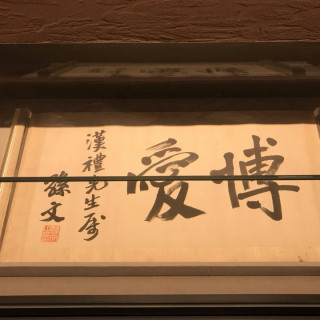 博愛
漢禮先生屬
孫文